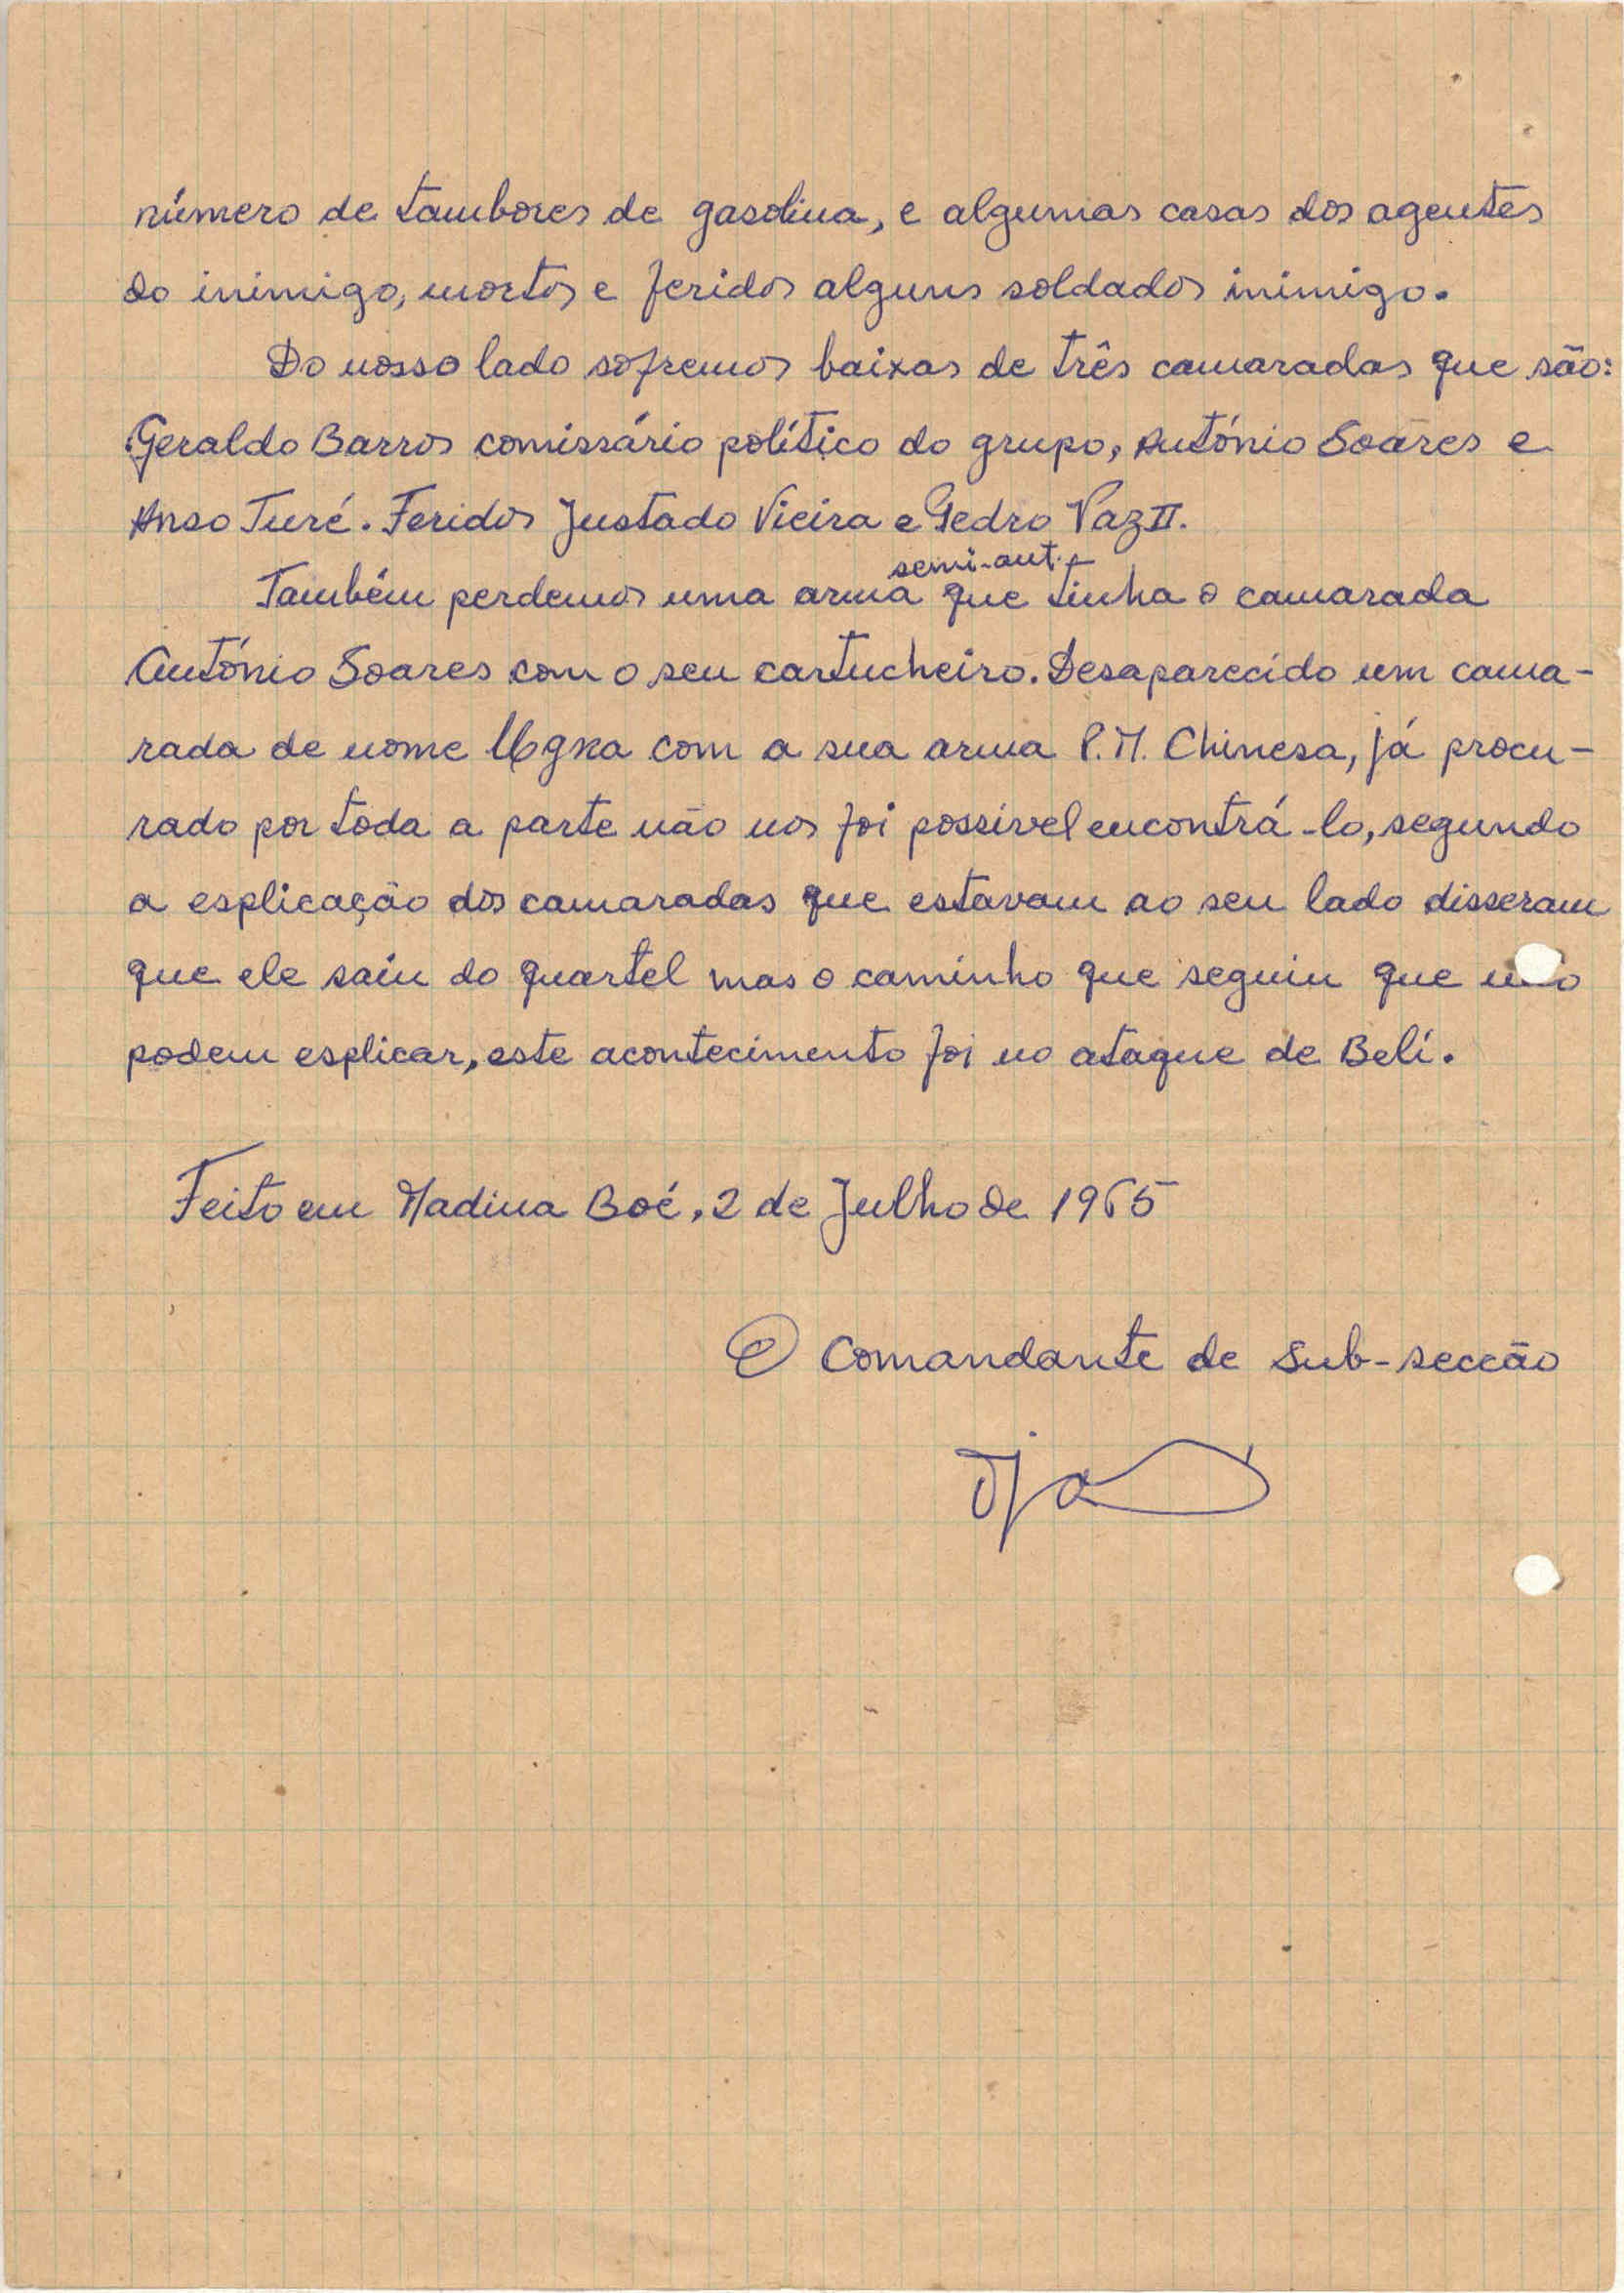 número de tambores de gasolina, e algumas casas dos agentes
do inimigo, mortos e feridos alguns soldados inimigo.
Do nosso lado sofremos baixas de três camaradas que são:
Geraldo Barros comissário político do grupo, António Soares e
Anso Turé. Feridos Justado Vieira e Pedro Vaz II.
semi-aut.
Também perdemos uma arma que tinha o camarada
António Soares com o seu cartucheiro. Desaparecido um cama-
rada de nome com a sua arma P.M. Chinesa, já procu-
rado por toda a parte não nos foi possível encontrá-lo, segundo
a esplicação dos camaradas que estavam ao seu lado disseram
que ele saíu do quartel mas o caminho que seguiu que não
podem esplicar, este acontecimento foi no ataque de Beli.
Feito em Madina Boé, 2 de Julho de 1965
O Comandante de Sub-secção